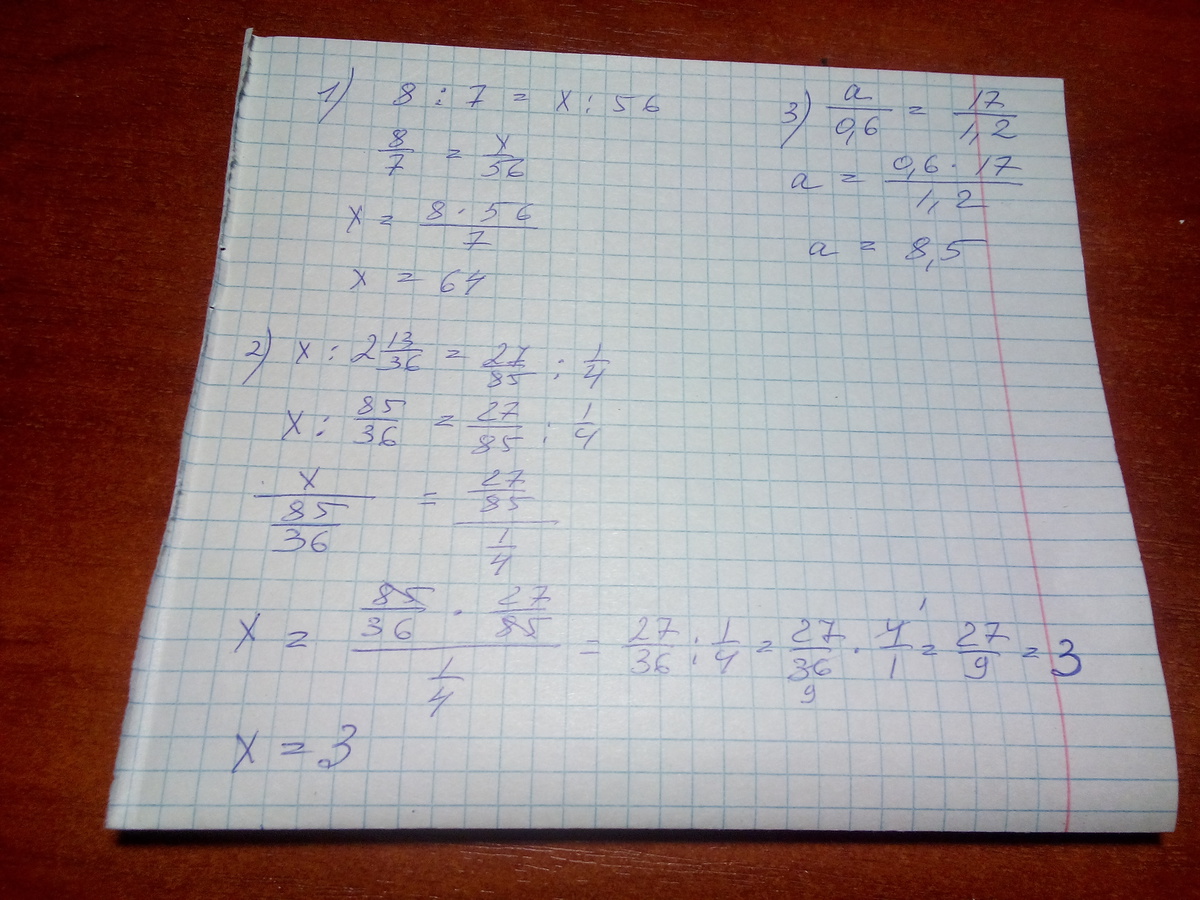 1) 8 : 7 = x : 56
8/7 = x/56
x = (8 · 56)/7
x = 64
3) a/0,6 = 17/1,2
a = (0,6 · 17)/1,2
a = 8,5
2) x : 2 13/36 = 27/85 : 1/4
x : 85/36 = 27/85 : 1/4
x/(85/36) = (27/85)/(1/4)
x = (85/36 · 27/85)/(1/4) = 27/36 : 1/4 = 27/36 9 · 4/1 1 = 27/9 = 3
x = 3